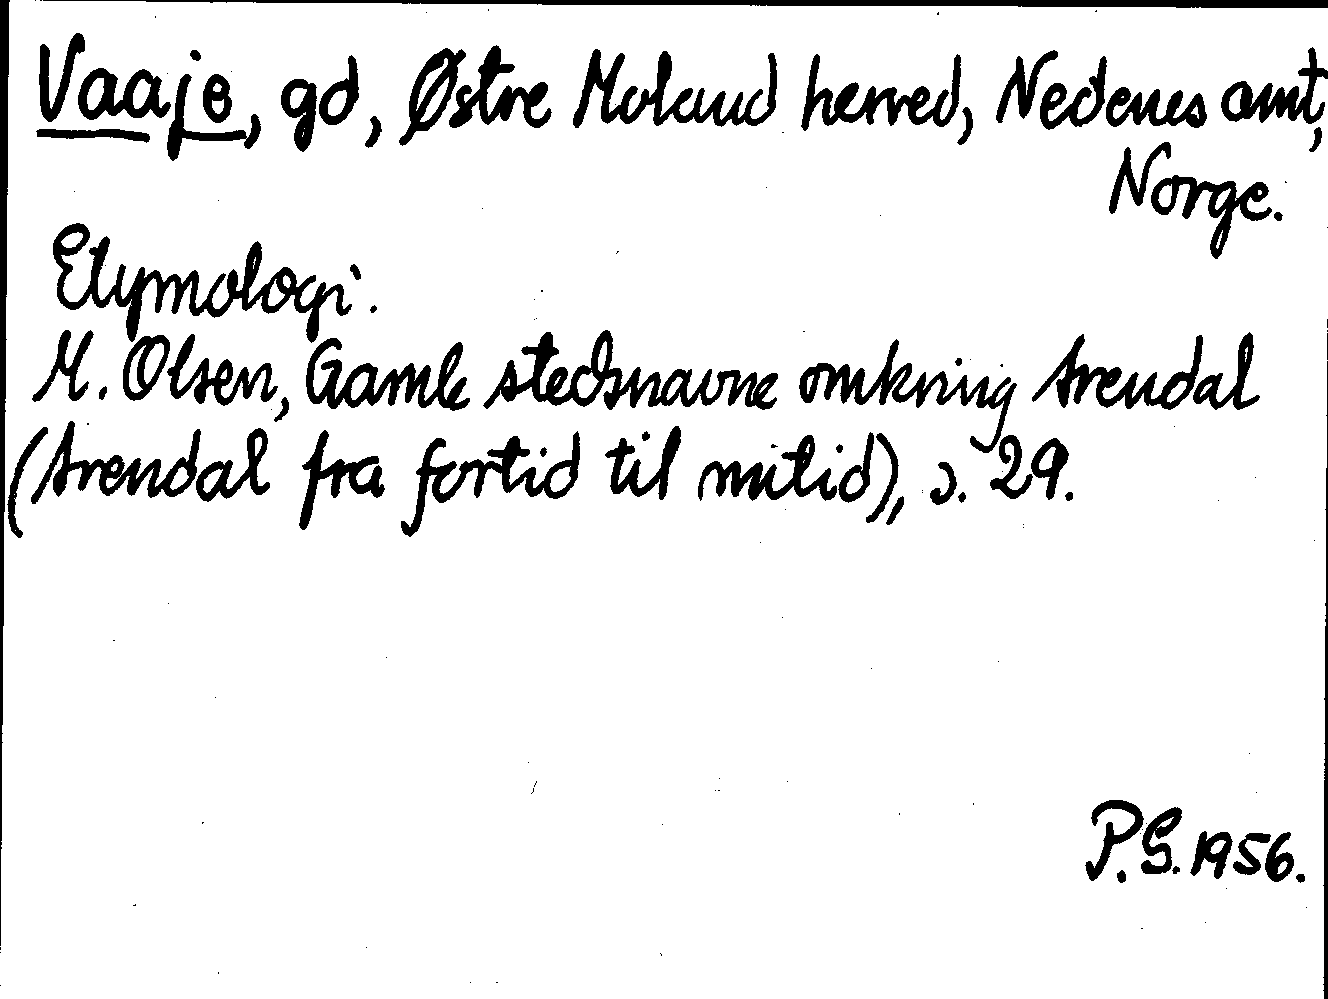 Vaaje, gd, Østre Moland herred, Nedenes amt,
Norge.
Etymologi.
M. Olsen, Gamle stedsnavne omkring Arendal
(Arendal fra fortid til nutid), s. 29.
P.S. 1956.